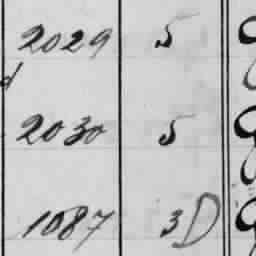 2029 5
2030 5
1087 3D